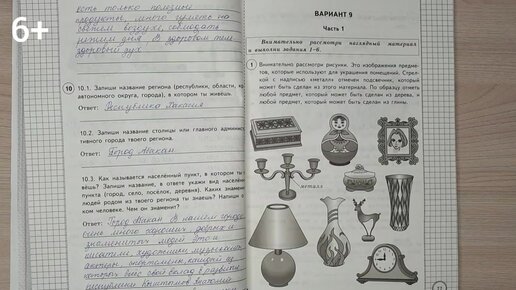 6+
есть только полезные
продукты, много гулять на
свежем воздухе, соблюдать
режим дня. В здоровом теле
здоровый дух.
10
10.1. Запиши название региона (республики, области,
автономного округа, города), в котором ты живёшь.
Ответ: Республика Хакасия
10.2. Запиши название столицы или главного админис-
тивного города твоего региона.
Ответ: Город Абакан
10.3. Как называется населённый пункт, в котором ты
вёшь? Запиши название, в ответе укажи вид населён
пункта (город, село, посёлок, деревня). Каких знамен
людей родом из твоего региона ты знаешь? Напиши о
ком человеке. Чем он знаменит?
Ответ: Город Абакан. В нашем городе
очень много хороших, добрых и
знаменитых людей. Это и
писатели, художники, музыканты,
актёры, спортсмены, каждый из
которых внёс свой вклад в развитие
республики
ВАРИАНТ 9
Часть 1
Внимательно рассмотри наглядный материал
и выполни задания 1–6.
1
Внимательно рассмотри рисунки. Это изображения предме-
тов, которые используют для украшения помещений. Стрел-
кой с надписью «металл» отмечен подсвечник, который
может быть сделан из этого материала. По образцу отметь
любой предмет, который может быть сделан из дерева, и
любой предмет, который может быть сделан из глины.
металл